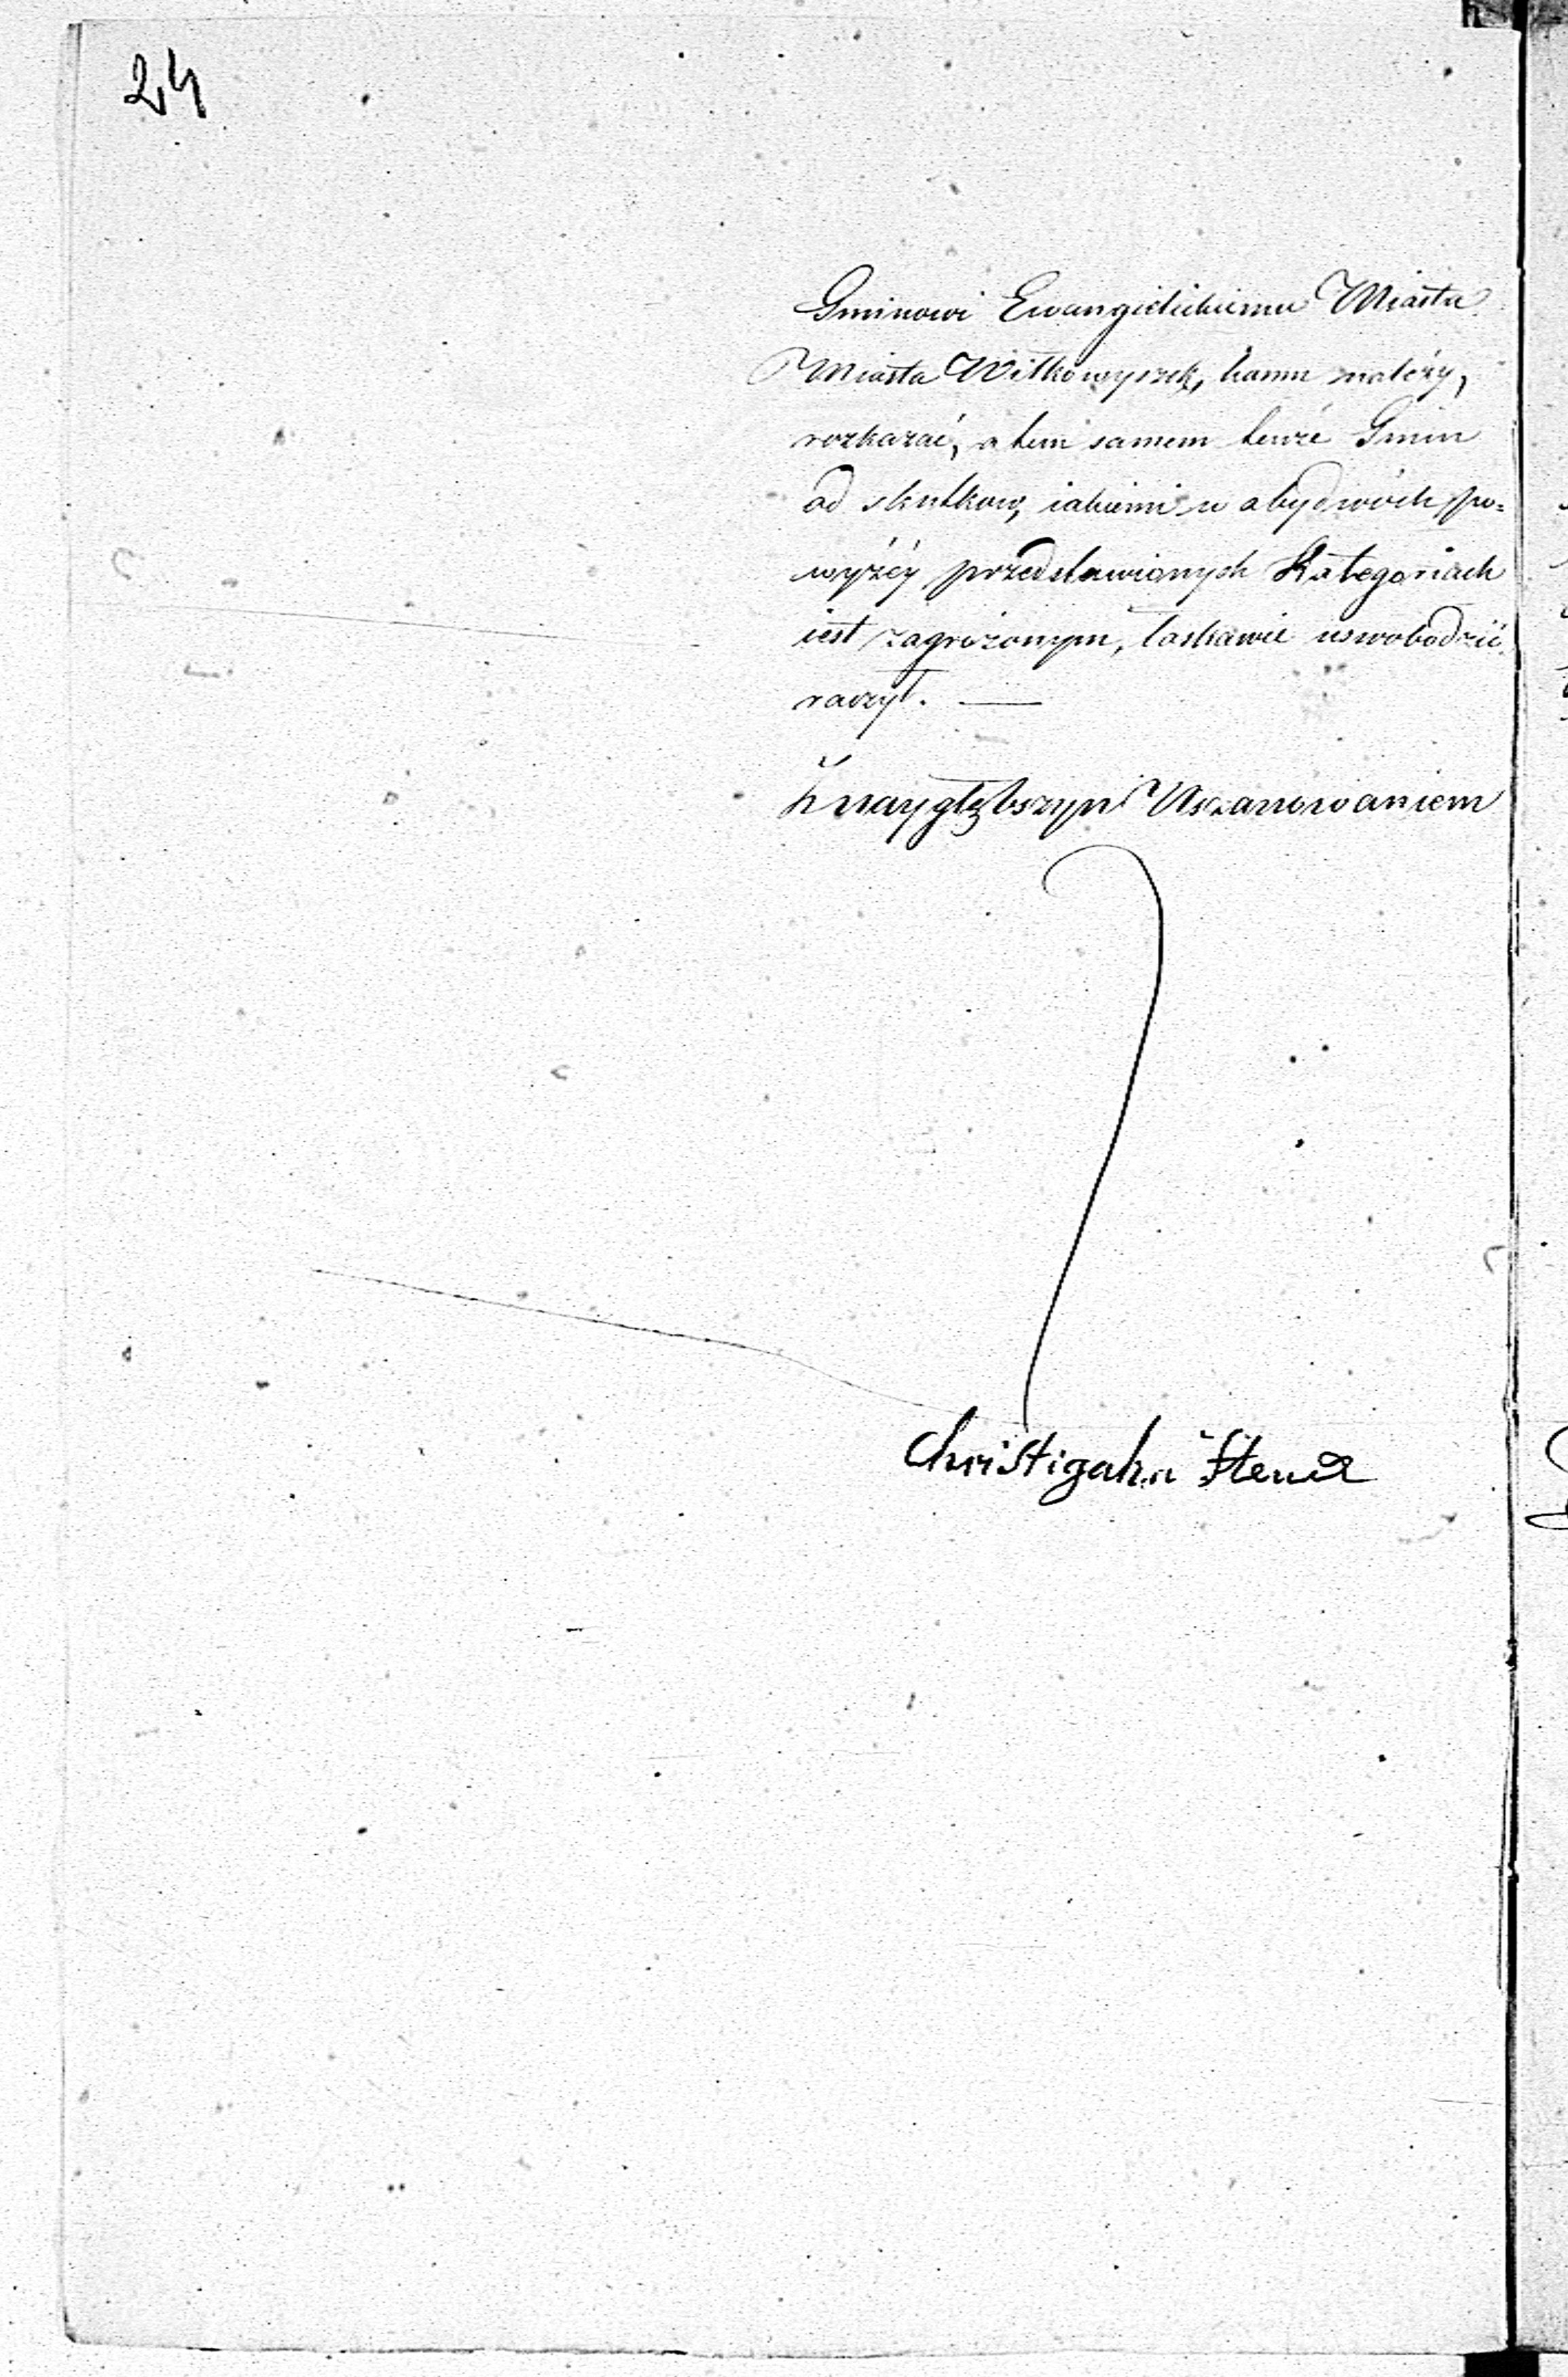 24
Gminowi Ewangielickiemu Miasta
Miasta Wiłkowyszek, komu należy,
rozkazać, a tem samem tenże Gmin
od skutkow, iakiemi w obydwóch po=
wyżéy przedstawionych Kategoriach
iest zagrożonym, łaskawie uswobodzić
raczył. —
Z naygłębszym Uszanowaniem